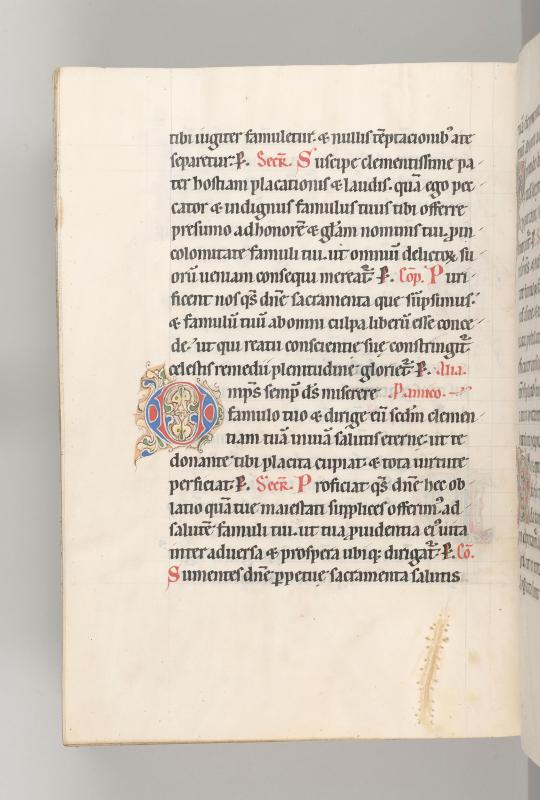 tibi iugiter famuletur. & nullis tēptacionib' a te
separetur. P. Secr̄. Suscipe clementissime pa
ter hostiam placationis & laudis. quā ego pec
cator & indignus famulus tuus tibi offerre
presumo ad honorē & gl̄am nominis tui. p̄ in
colomitate famuli tui. ut omniū delictoꝝ su
orū ueniam consequi mereat᷑. P. Cōp. Puri
ficent nos qs̄ dn̄e sacramenta que sūpsimus.
& famulū tuū ab omni culpa liberū esse conce
de. ut qui reatu conscientie sue constringit᷑
celestis remedii plenitudine gloriet᷑. P. Alia.
Omps̄ semp̄ ds̄ miserere P. amico.
famulo tuo & dirige eū scd̄m clemen
tiam tuā in uiā salutis eterne. ut te
donante tibi placita cupiat & tota uirtute
perficiat. P. Secr̄. Proficiat qs̄ dn̄e hec ob
latio quā tue maiestati supplices offerim' ad
salutē famuli tui. ut tua p̄uidentia ei' uita
inter aduersa & prospera ubiq: dirigat᷑. P. Cō.
Sumentes dn̄e ꝑpetue sacramenta salutis